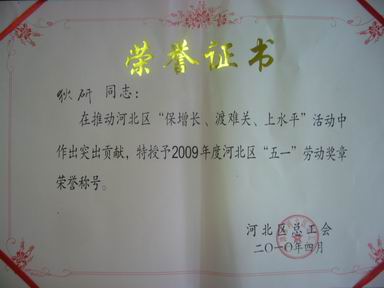 荣誉证书
狄研 同志：
在推动河北区“保增长、渡难关、上水平”活动中
作出突出贡献，特授予2009年度河北区“五一”劳动奖章
荣誉称号。
河北区总工会
二〇一〇年四月